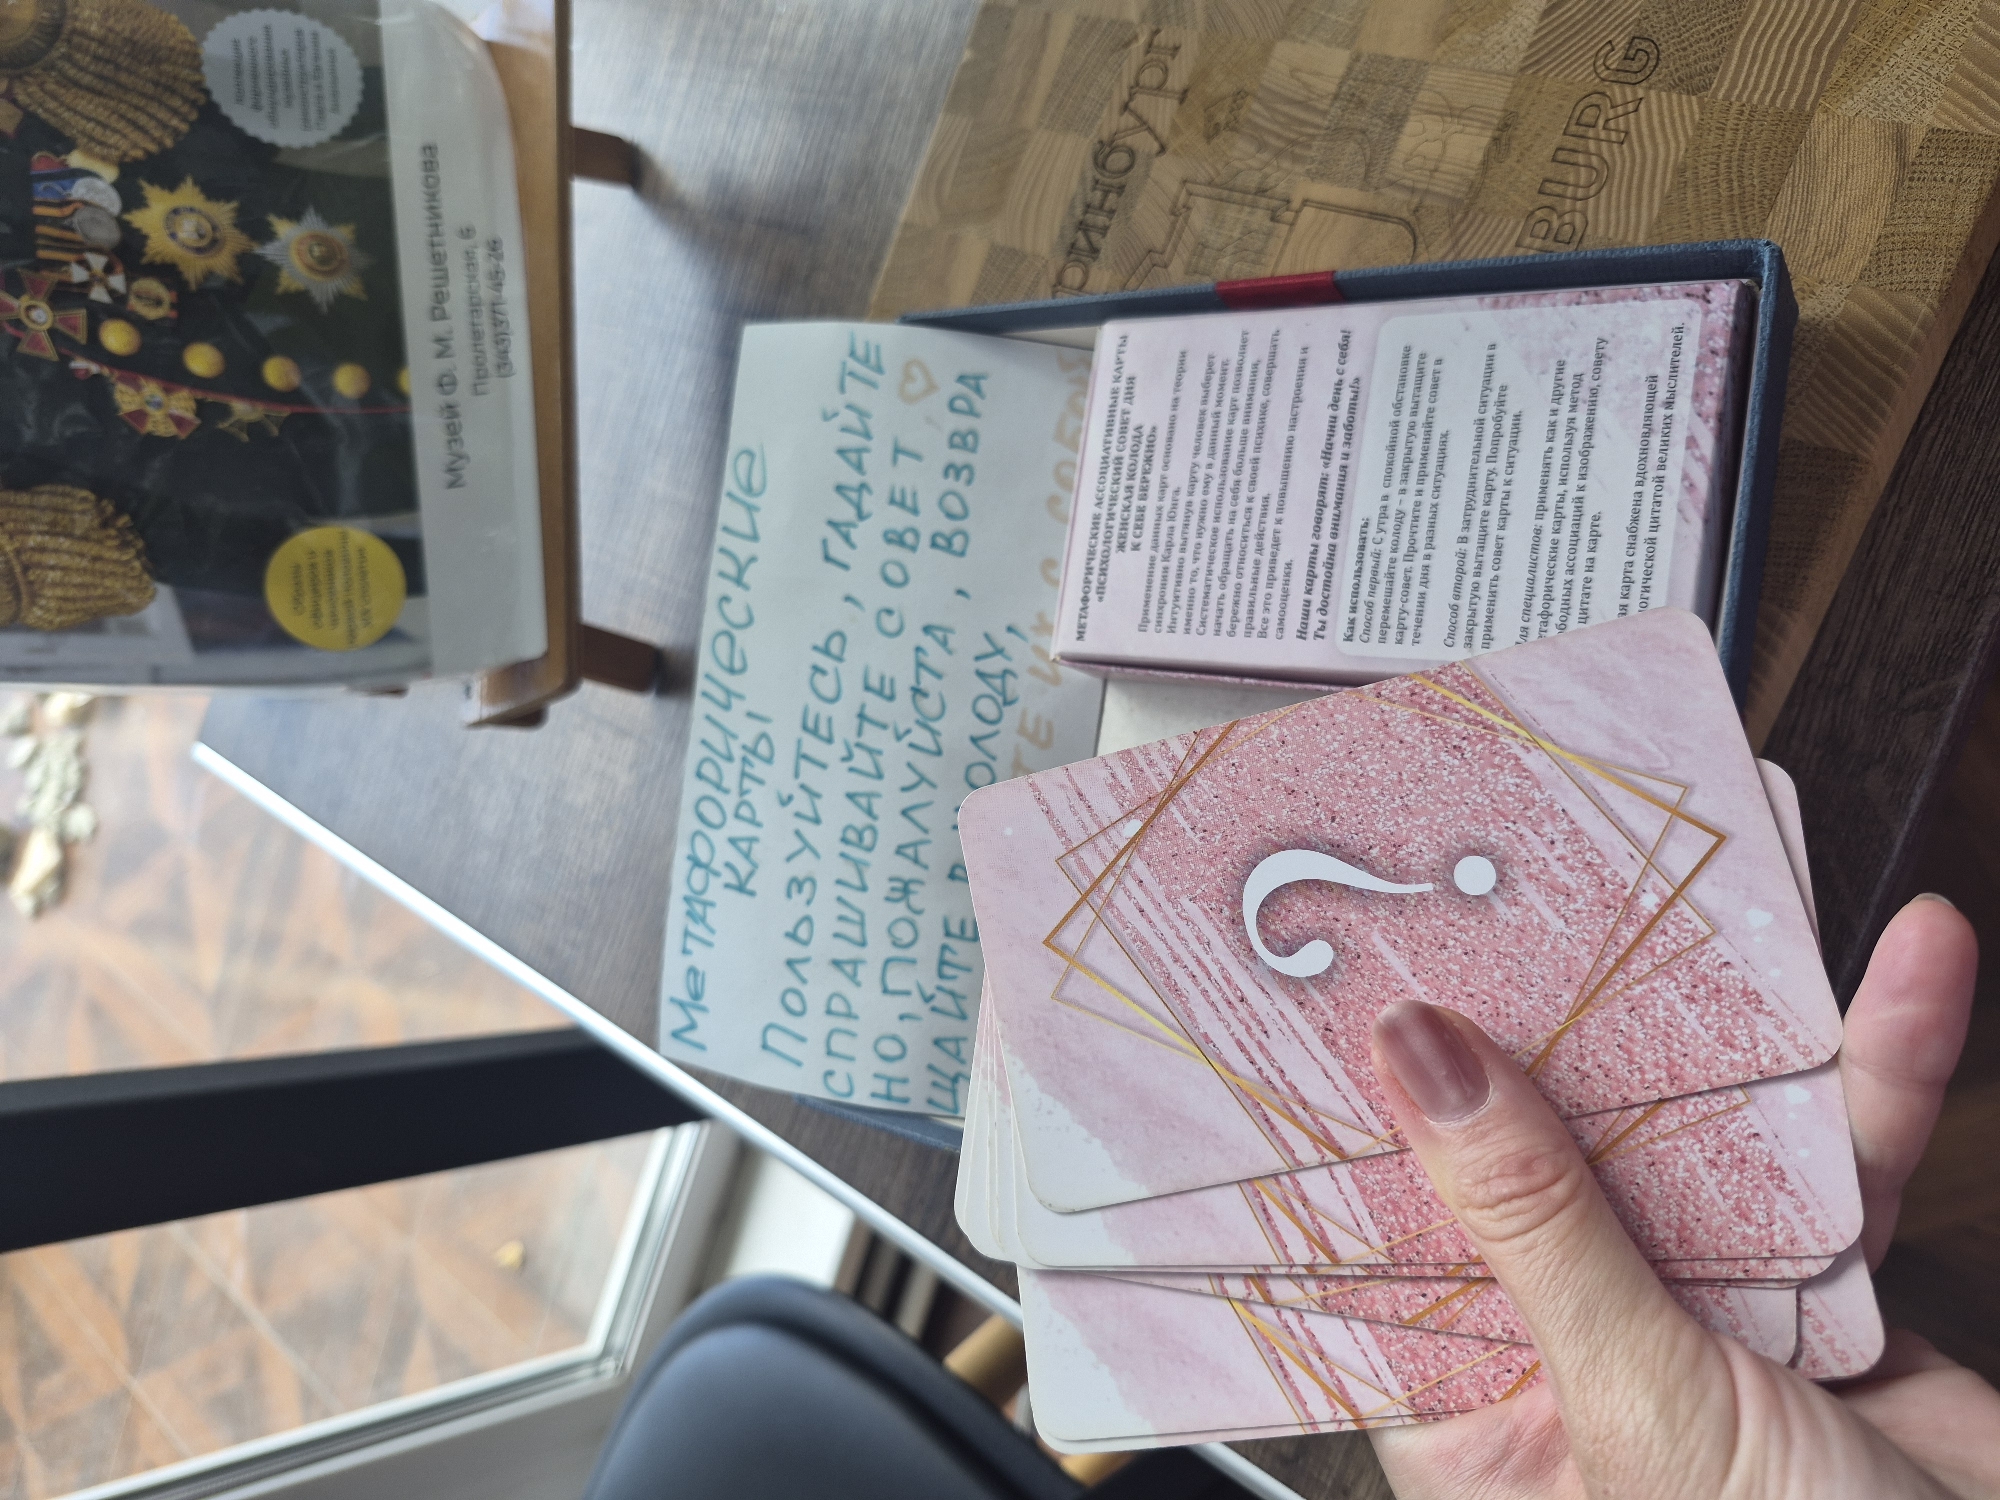 Музей Ф. М. Решетникова
Пролетарская, 6
(343)371-45-26
Метафорические
карты
Пользуйтесь, гадайте
спрашивайте совет ♡
но, пожалуйста, возвра
щайте в колоду,
МЕТАФОРИЧЕСКИЕ АССОЦИАТИВНЫЕ КАРТЫ
«ПСИХОЛОГИЧЕСКИЙ СОВЕТ ДНЯ
ЖЕНСКАЯ КОЛОДА
К СЕБЕ БЕРЕЖНО»
Применение данных карт основано на теории
синхронии Карла Юнга.
Интуитивно вытянув карту человек выберет
именно то, что нужно ему в данный момент.
Систематическое использование карт позволяет
начать обращать на себя больше внимания,
бережно относиться к своей психике, совершать
правильные действия.
Все это приведет к повышению настроения и
самооценки.
Наши карты говорят: «Начни день с себя!
Ты достойна внимания и заботы!»
Как использовать:
Способ первый: С утра в спокойной обстановке
перемешайте колоду – в закрытую вытащите
карту-совет. Прочтите и применяйте совет в
течении дня в разных ситуациях.
Способ второй: В затруднительной ситуации в
закрытую вытащите карту. Попробуйте
применить совет карты к ситуации.
Для специалистов: применять как и другие
метафорические карты, используя метод
свободных ассоциаций к изображению, совету
цитате на карте.
карта снабжена вдохновляющей
цитатой великих мыслителей.
?
ринбург
BURG